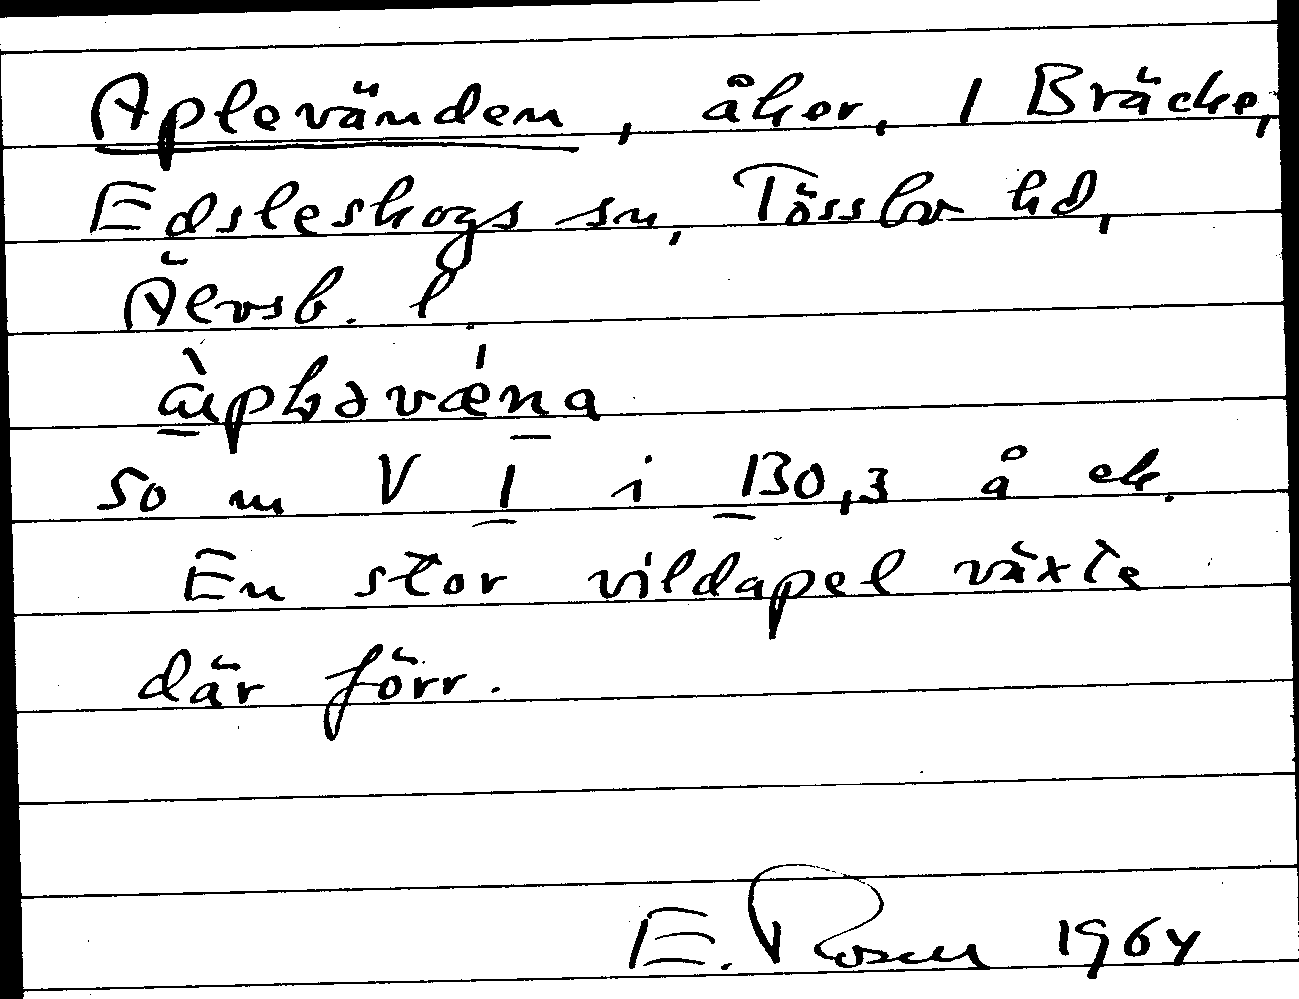 Aplevänden, åker, 1 Bräcke,
Edsleskogs sn, Tössbo hd,
Älvsb. l.
àpləvǽna
50 m V 1 i 130,3 å ek.
En stor vildapel växte
där förr.
E. Rosen 1964